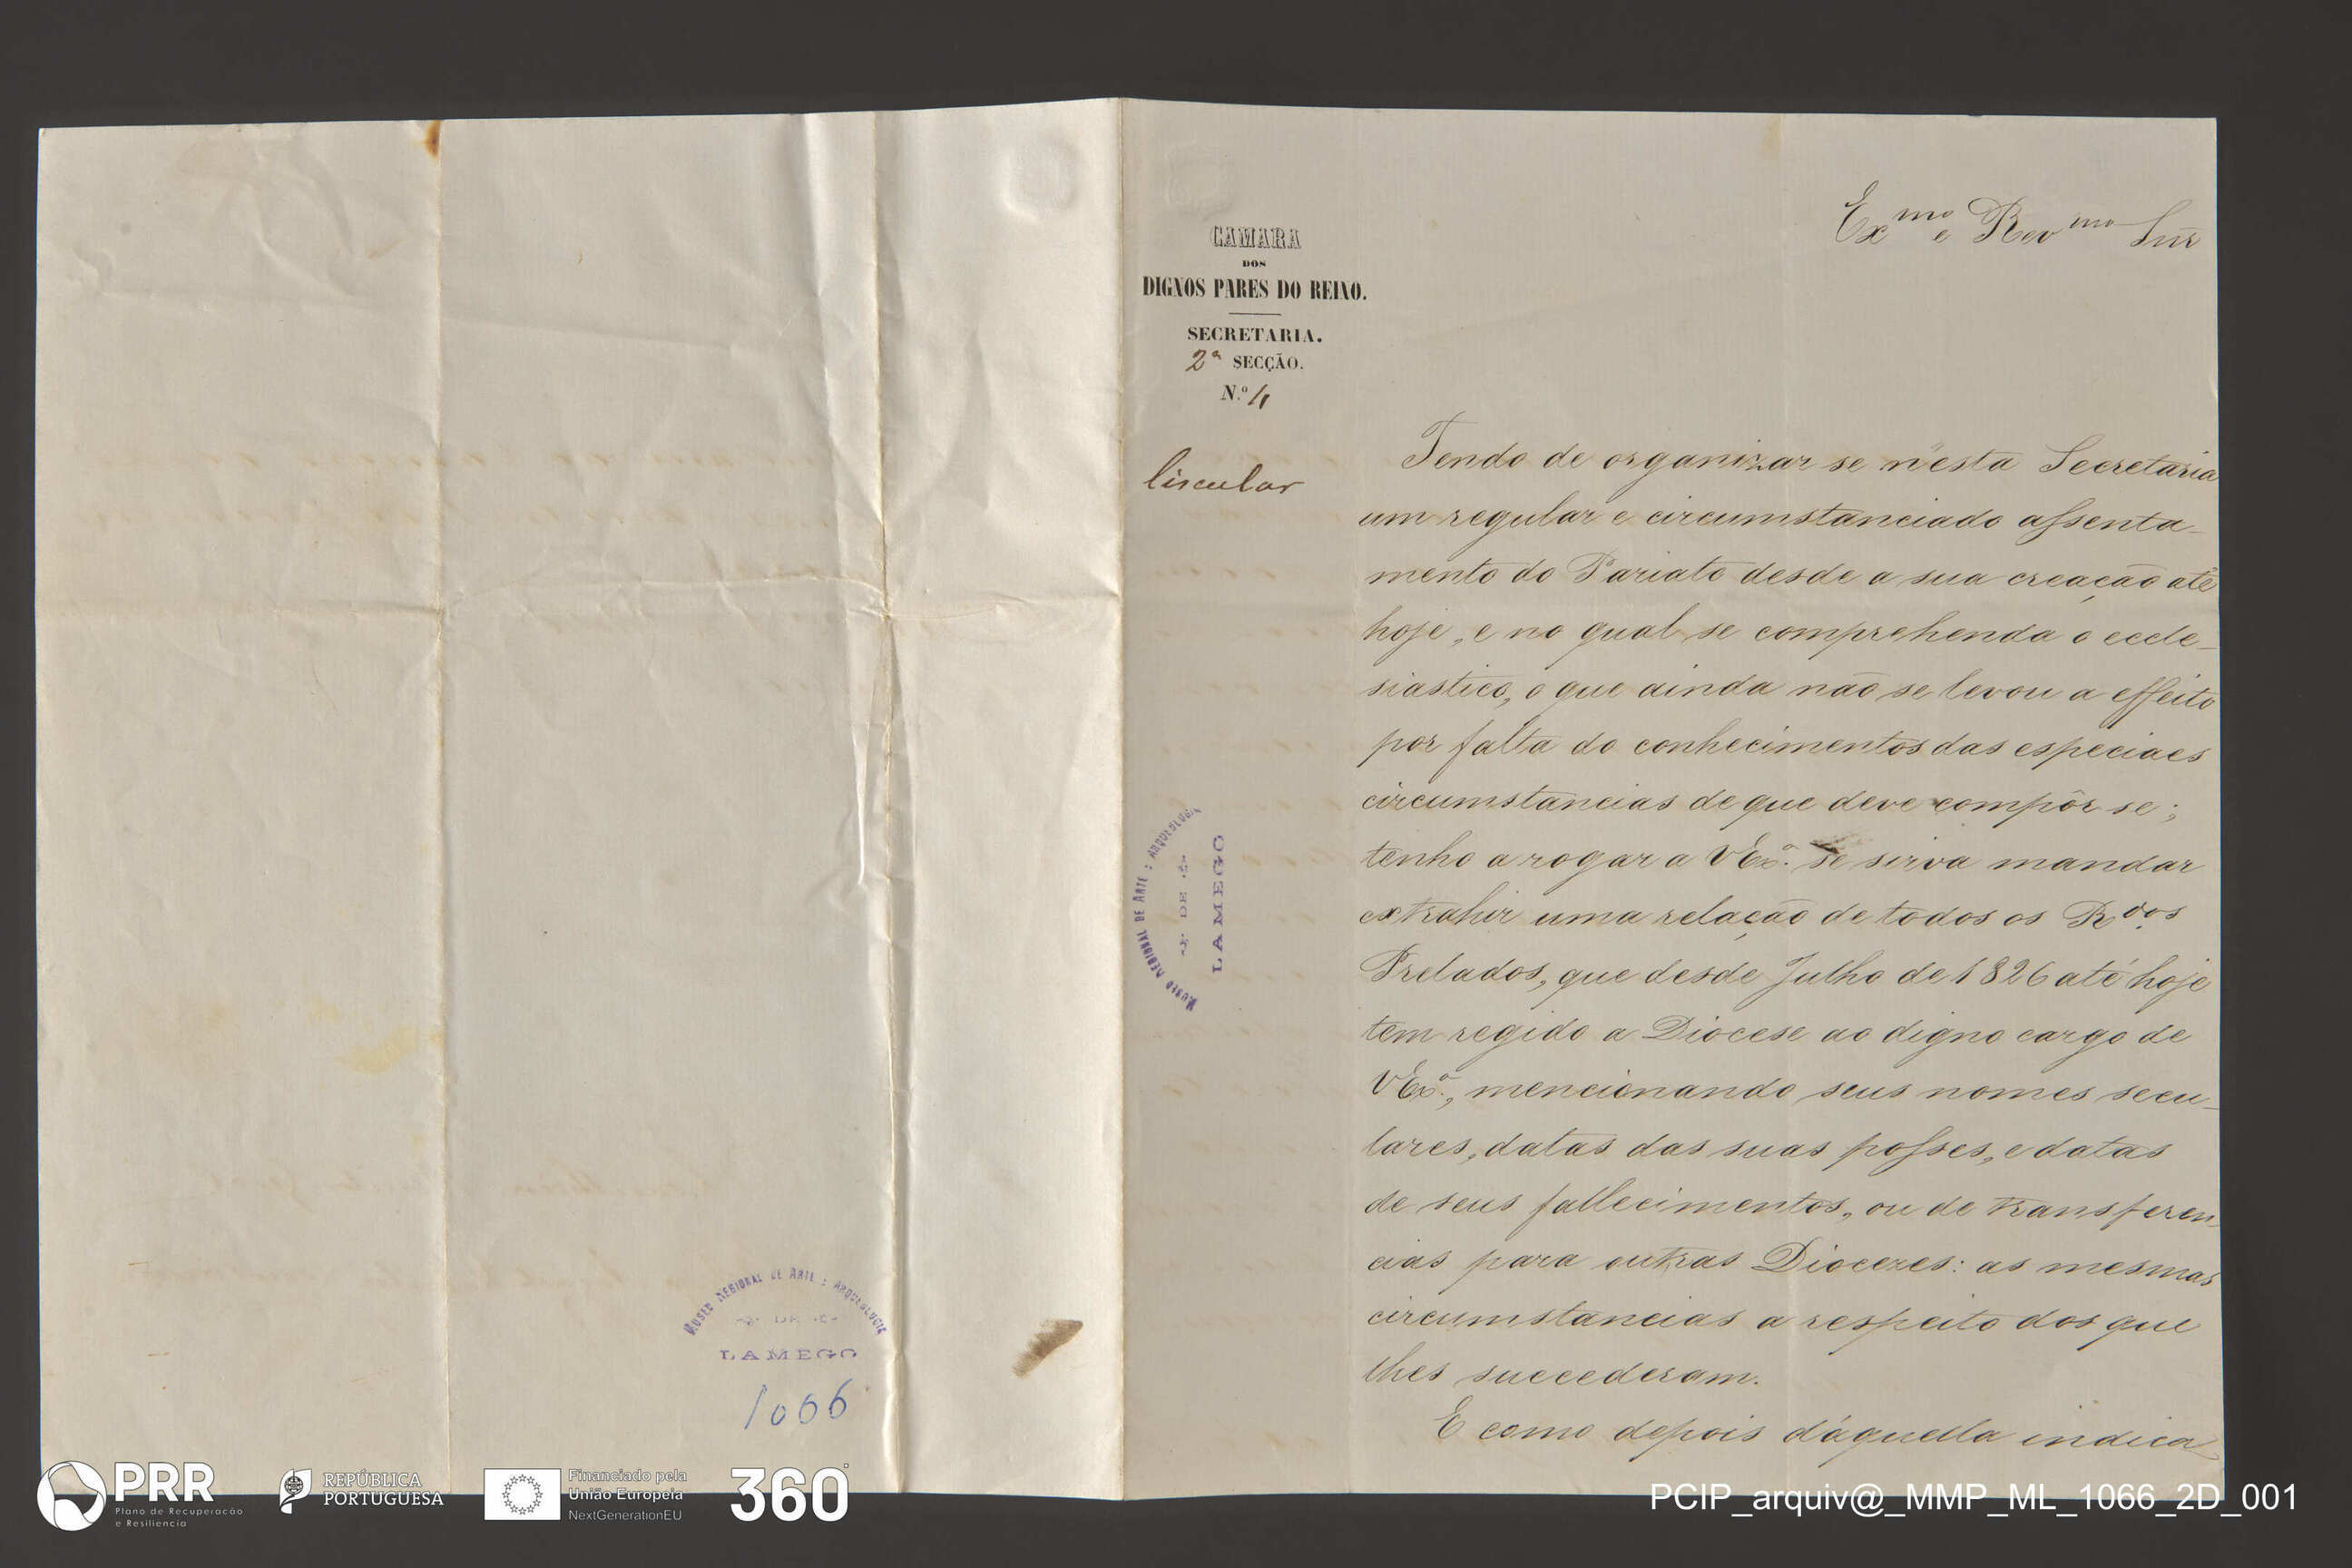 MUSEU REGIONAL DE ARTE E ARQUEOLOGIA
DE
LAMEGO
1066
CAMARA
DOS
DIGNOS PARES DO REINO.
SECRETARIA.
2ª SECÇÃO.
N.º 4
Circular
MUSEU REGIONAL DE ARTE E ARQUEOLOGIA
DE
LAMEGO
Exmo e Revmo Snr
Tendo de organizar se n'esta Secretaria
um regular e circumstanciado assenta-
mento do Pariato desde a sua creação até
hoje, e no qual se comprehenda o eccle-
siastico, o que ainda não se levou a effeito
por falta do conhecimentos das especiaes
circumstancias de que deve compôr se;
tenho a rogar a VExª. se sirva mandar
extrahir uma relação de todos os Rdos
Prelados, que desde Julho de 1826 até hoje
tem regido a Diocese ao digno cargo de
VExª., mencionando seus nomes secu-
lares, datas das suas posses, e datas
de seus fallecimentos, ou de transferen-
cias para outras Diocezes: as mesmas
circumstancias a respeito dos que
lhes succederam.
E como depois d'áquella indica
PRR
Plano de Recuperação
e Resiliência
REPÚBLICA
PORTUGUESA
Financiado pela
União Europeia
NextGenerationEU
360°
PCIP_arquiv@_MMP_ML_1066_2D_001